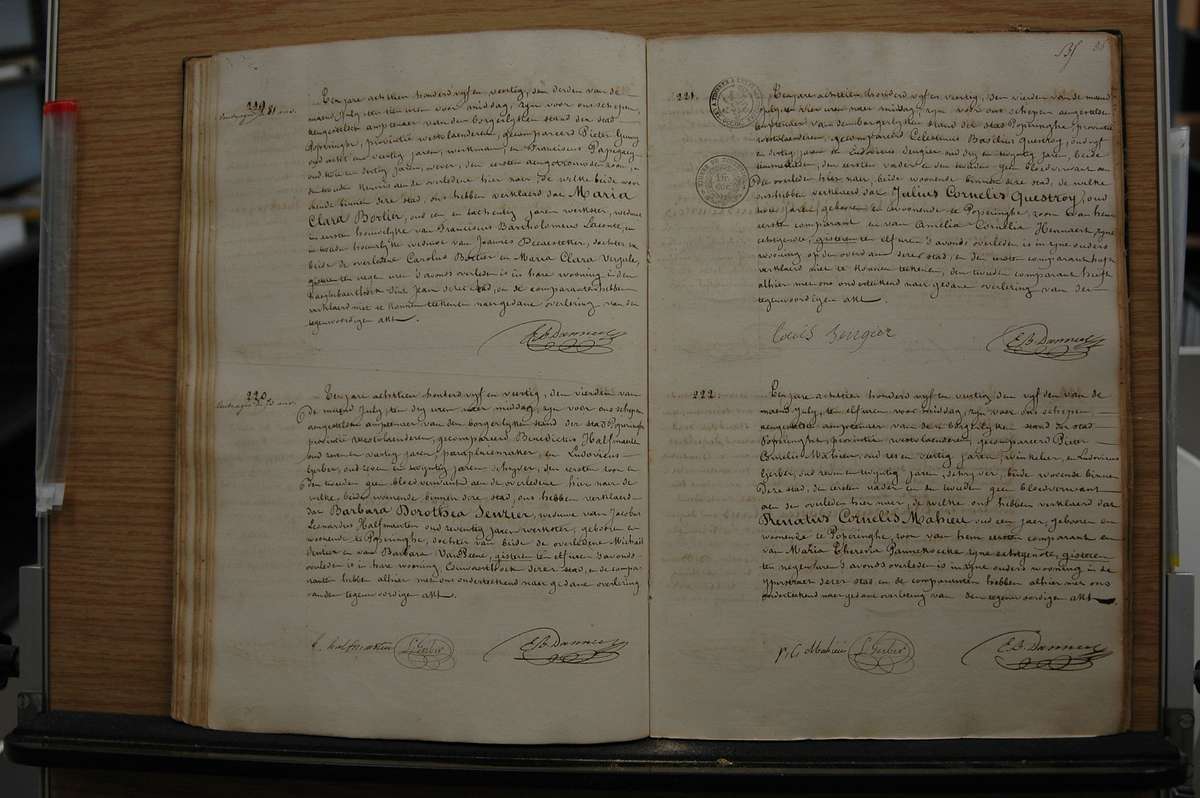 219
Ten jare achttien honderd vyf en veertig, den derden van de
maend July ten tien uren voor middag, zyn voor ons schepen,
aengestelden amptenaer van den borgerlyken stand der stad
Poperinghe, provintie westvlaenderen, gecompareerd Pieter
oud acht en veertig jaren, werkman, en Franciscus
oud en dertig jaren, wever, den eersten aengetrouwden zoon, en
den tweeden kennis aen de overledene hier naer de welke beide woo-
nende binnen deze stad, ons hebben verklaerd dat Maria
Clara Bortier, oud een en tachentig jaren werkster, weduwe
in eersten houwelyke van Franciscus Bartholomeus en
in tweeden houwelyke weduwe van Joannes dochter van
beide de overledene Carolus Bortier en Maria Clara
gisteren ten negen uren d'avonds overleden is in hare wooning in den
Sint Jean dezer stad, en de comparanten hebben
verklaerd niet te konnen teekenen naer gedane overlezing van den
tegenwoordigen akt.
220
Ten jare achttien honderd vyf en veertig, den vierden van
de maend July, ten dry uren naer middag, zyn voor ons schepen
aengestelden amptenaer van den borgerlyken stand der stad Poperinghe
provintie Westvlaenderen, gecompareerd Benedictus Halfmaerten
oud een en veertig jaren, parapluiemaker, en Ludovicus
Gerber, oud zeven en twintig jaren schryver, den eersten zoon en
den tweeden geen bloedverwant aen de overledene hier naer de
welke beide woonende binnen deze stad, ons hebben verklaerd
dat Barbara Dorothea weduwe van Jacobus
Leonardus Halfmaerten oud zeventig jaren werkster, geboren en
woonende te Poperinghe, dochter van beide de overledene Michiel
en van Barbara VanPeene, gisteren ten elf uren d'avonds
overleden is in hare wooning, dezer stad, en de compa-
ranten hebben alhier met ons onderteekend naer gedane overlezing
van den tegenwoordigen akt.
b. halfmaerten L Gerber
221.
Ten jare achttien honderd vyf en veertig, den vierden van de maend
July, ten vier uren naer middag, zyn voor ons schepen aengestelden
amptenaer van den borgerlyken stand der stad Poperinghe, provintie
westvlaenderen, gecompareerd Celestinus Basilius Questroy, oud vyf
en dertig jaren en Ludovicus oud dry en twintig jaren, beide
den eersten vader en den tweeden geen bloedverwant aen
den overleden hier naer beide woonende binnen deze stad, de welke
ons hebben verklaerd dat Julius Cornelis Questroy, oud
jaren, geboren en woonende te Poperinghe, zoon van hem
eersten comparant en van Amelia Cornelia Hennaert, zyne
echtgenote, gisteren ten elf uren d'avonds overleden is in zyne ouders
wooning op den overdam dezer stad, en den eersten comparant heeft
verklaerd niet te konnen teekenen, den tweeden comparant heeft
alhier met ons onderteekend naer gedane overlezing van den
tegenwoordigen akt.
222.
Ten jare achttien honderd vyf en veertig den vyfden van de
maend July, ten elf uren voor middag, zyn voor ons schepen
aengestelden amptenaer van den borgerlyken stand der stad
Poperinghe, provintie westvlaenderen, gecompareerd Pieter
Cornelis Mahieu, oud zes en veertig jaren, winkelier, en Ludovicus
Gerber, oud zeven en twintig jaren, schryver, beide woonende binnen
deze stad, den eersten vader en den tweeden geen bloedverwant
aen den overleden hier naer, de welke ons hebben verklaerd dat
Renatus Cornelis Mahieu oud een jaer, geboren en
woonende te Poperinghe, zoon van hem eersten comparant en
van Maria Theresia Pannekoecke zyne echtgenote, gisteren
ten negen uren d'avonds overleden is in zyne ouders wooning in de
yperstraet dezer stad en de comparanten hebben alhier met ons
onderteekend naer gedane overlezing van den tegenwoordigen akt
p, C Mahieu L Gerber